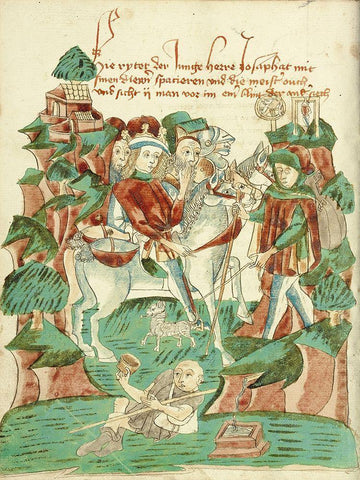 Hie rytet der Junge herre Josaphat mit
sinen diewn spacieren vnd die meist ouch
vnd sicht ij man vor im ein bling der and sieth